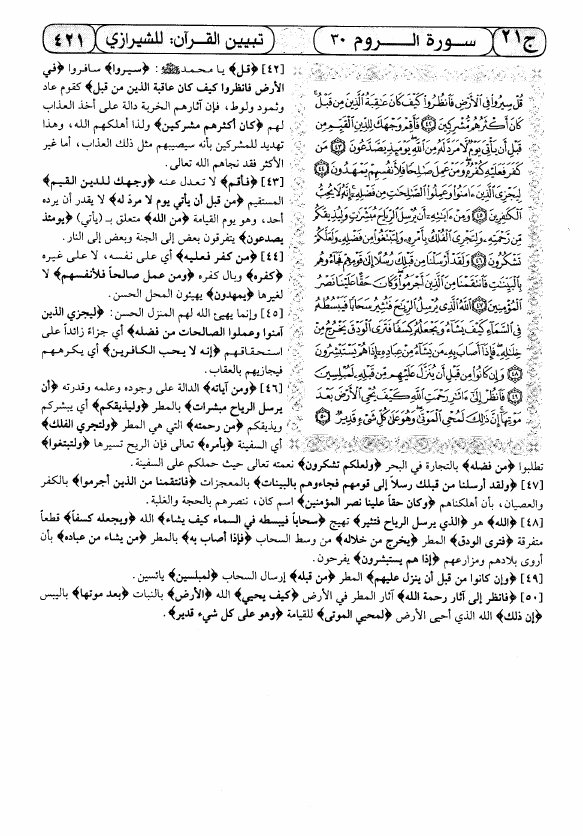 ج٢١
سورة الـــروم ٣٠
تبيين القرآن: للشيرازي
٤٢١
قُلْ سِيرُوا۟ فِى ٱلْأَرْضِ فَٱنظُرُوا۟ كَيْفَ كَانَ عَـٰقِبَةُ ٱلَّذِينَ مِن قَبْلُ
كَانَ أَكْثَرُهُم مُّشْرِكِينَ ﴿٤٢﴾ فَأَقِمْ وَجْهَكَ لِلدِّينِ ٱلْقَيِّمِ مِن
قَبْلِ أَن يَأْتِىَ يَوْمٌ لَّا مَرَدَّ لَهُۥ مِنَ ٱللَّهِ يَوْمَئِذٍ يَصَّدَّعُونَ ﴿٤٣﴾ مَن
كَفَرَ فَعَلَيْهِ كُفْرُهُۥ وَمَنْ عَمِلَ صَـٰلِحًا فَلِأَنفُسِهِمْ يَمْهَدُونَ ﴿٤٤﴾
لِيَجْزِىَ ٱلَّذِينَ ءَامَنُوا۟ وَعَمِلُوا۟ ٱلصَّـٰلِحَـٰتِ مِن فَضْلِهِۦٓ إِنَّهُۥ لَا يُحِبُّ
ٱلْكَـٰفِرِينَ ﴿٤٥﴾ وَمِنْ ءَايَـٰتِهِۦٓ أَن يُرْسِلَ ٱلرِّيَاحَ مُبَشِّرَٰتٍ وَلِيُذِيقَكُم
مِّن رَّحْمَتِهِۦ وَلِتَجْرِىَ ٱلْفُلْكُ بِأَمْرِهِۦ وَلِتَبْتَغُوا۟ مِن فَضْلِهِۦ وَلَعَلَّكُمْ
تَشْكُرُونَ ﴿٤٦﴾ وَلَقَدْ أَرْسَلْنَا مِن قَبْلِكَ رُسُلًا إِلَىٰ قَوْمِهِمْ فَجَآءُوهُم
بِٱلْبَيِّنَـٰتِ فَٱنتَقَمْنَا مِنَ ٱلَّذِينَ أَجْرَمُوا۟ وَكَانَ حَقًّا عَلَيْنَا نَصْرُ
ٱلْمُؤْمِنِينَ ﴿٤٧﴾ ٱللَّهُ ٱلَّذِى يُرْسِلُ ٱلرِّيَـٰحَ فَتُثِيرُ سَحَابًا فَيَبْسُطُهُۥ
فِى ٱلسَّمَآءِ كَيْفَ يَشَآءُ وَيَجْعَلُهُۥ كِسَفًا فَتَرَى ٱلْوَدْقَ يَخْرُجُ مِنْ
خِلَـٰلِهِۦ فَإِذَآ أَصَابَ بِهِۦ مَن يَشَآءُ مِنْ عِبَادِهِۦٓ إِذَا هُمْ يَسْتَبْشِرُونَ
﴿٤٨﴾ وَإِن كَانُوا۟ مِن قَبْلِ أَن يُنَزَّلَ عَلَيْهِم مِّن قَبْلِهِۦ لَمُبْلِسِينَ
﴿٤٩﴾ فَٱنظُرْ إِلَىٰٓ ءَاثَـٰرِ رَحْمَتِ ٱللَّهِ كَيْفَ يُحْىِ ٱلْأَرْضَ بَعْدَ
مَوْتِهَآ إِنَّ ذَٰلِكَ لَمُحْىِ ٱلْمَوْتَىٰ وَهُوَ عَلَىٰ كُلِّ شَىْءٍ قَدِيرٌ ﴿٥٠﴾
[٤٢] ﴿قل﴾ يا محمد ﷺ : ﴿سيروا﴾ سافروا ﴿في
الأرض فانظروا كيف كان عاقبة الذين من قبل﴾ كقوم عاد
وثمود ولوط، فإن آثارهم الخربة دالة على أخذ العذاب
لهم ﴿كان أكثرهم مشركين﴾ ولذا أهلكهم الله، وهذا
تهديد للمشركين بأنه سيصيبهم مثل ذلك العذاب، أما غير
الأكثر فقد نجاهم الله تعالى.
[٤٣] ﴿فأقم﴾ لا تعدل عنه ﴿وجهك للدين القيم﴾
المستقيم ﴿من قبل أن يأتي يوم لا مرد له﴾ لا يقدر أن يرده
أحد، وهو يوم القيامة ﴿من الله﴾ متعلق بـ (يأتي) ﴿يومئذ
يصدعون﴾ يتفرقون بعض إلى الجنة وبعض إلى النار.
[٤٤] ﴿من كفر فعليه﴾ أي على نفسه، لا على غيره
﴿كفره﴾ وبال كفره ﴿ومن عمل صالحاً فلأنفسهم﴾ لا
لغيرها ﴿يمهدون﴾ يهيئون المحل الحسن.
[٤٥] وإنما يهيئ الله لهم المنزل الحسن: ﴿ليجزي الذين
آمنوا وعملوا الصالحات من فضله﴾ أي جزاءً زائداً على
استحقاقهم ﴿إنه لا يحب الكافرين﴾ أي يكرههم
فيجازيهم بالعقاب.
[٤٦] ﴿ومن آياته﴾ الدالة على وجوده وعلمه وقدرته ﴿أن
يرسل الرياح مبشرات﴾ بالمطر ﴿وليذيقكم﴾ أي يبشركم
ويذيقكم ﴿من رحمته﴾ التي هي المطر ﴿ولتجري الفلك﴾
أي السفينة ﴿بأمره﴾ تعالى فإن الريح تسيرها ﴿ولتبتغوا﴾
تطلبوا ﴿من فضله﴾ بالتجارة في البحر ﴿ولعلكم تشكرون﴾ نعمته تعالى حيث حملكم على السفينة.
[٤٧] ﴿ولقد أرسلنا من قبلك رسلاً إلى قومهم فجاءوهم بالبينات﴾ بالمعجزات ﴿فانتقمنا من الذين أجرموا﴾ بالكفر
والعصيان، بأن أهلكناهم ﴿وكان حقاً علينا نصر المؤمنين﴾ اسم كان، ننصرهم بالحجة والغلبة.
[٤٨] ﴿الله﴾ هو ﴿الذي يرسل الرياح فتثير﴾ تهيج ﴿سحاباً فيبسطه في السماء كيف يشاء﴾ الله ﴿ويجعله كسفاً﴾ قطعاً
متفرقة ﴿فترى الودق﴾ المطر ﴿يخرج من خلاله﴾ من وسط السحاب ﴿فإذا أصاب به﴾ بالمطر ﴿من يشاء من عباده﴾ بأن
أروى بلادهم ومزارعهم ﴿إذا هم يستبشرون﴾ يفرحون.
[٤٩] ﴿وإن كانوا من قبل أن ينزل عليهم﴾ المطر ﴿من قبله﴾ إرسال السحاب ﴿لمبلسين﴾ يائسين.
[٥٠] ﴿فانظر إلى آثار رحمة الله﴾ آثار المطر في الأرض ﴿كيف يحيي﴾ الله ﴿الأرض﴾ بالنبات ﴿بعد موتها﴾ باليبس
﴿إن ذلك﴾ الله الذي أحيى الأرض ﴿لمحيي الموتى﴾ للقيامة ﴿وهو على كل شيء قدير﴾ .